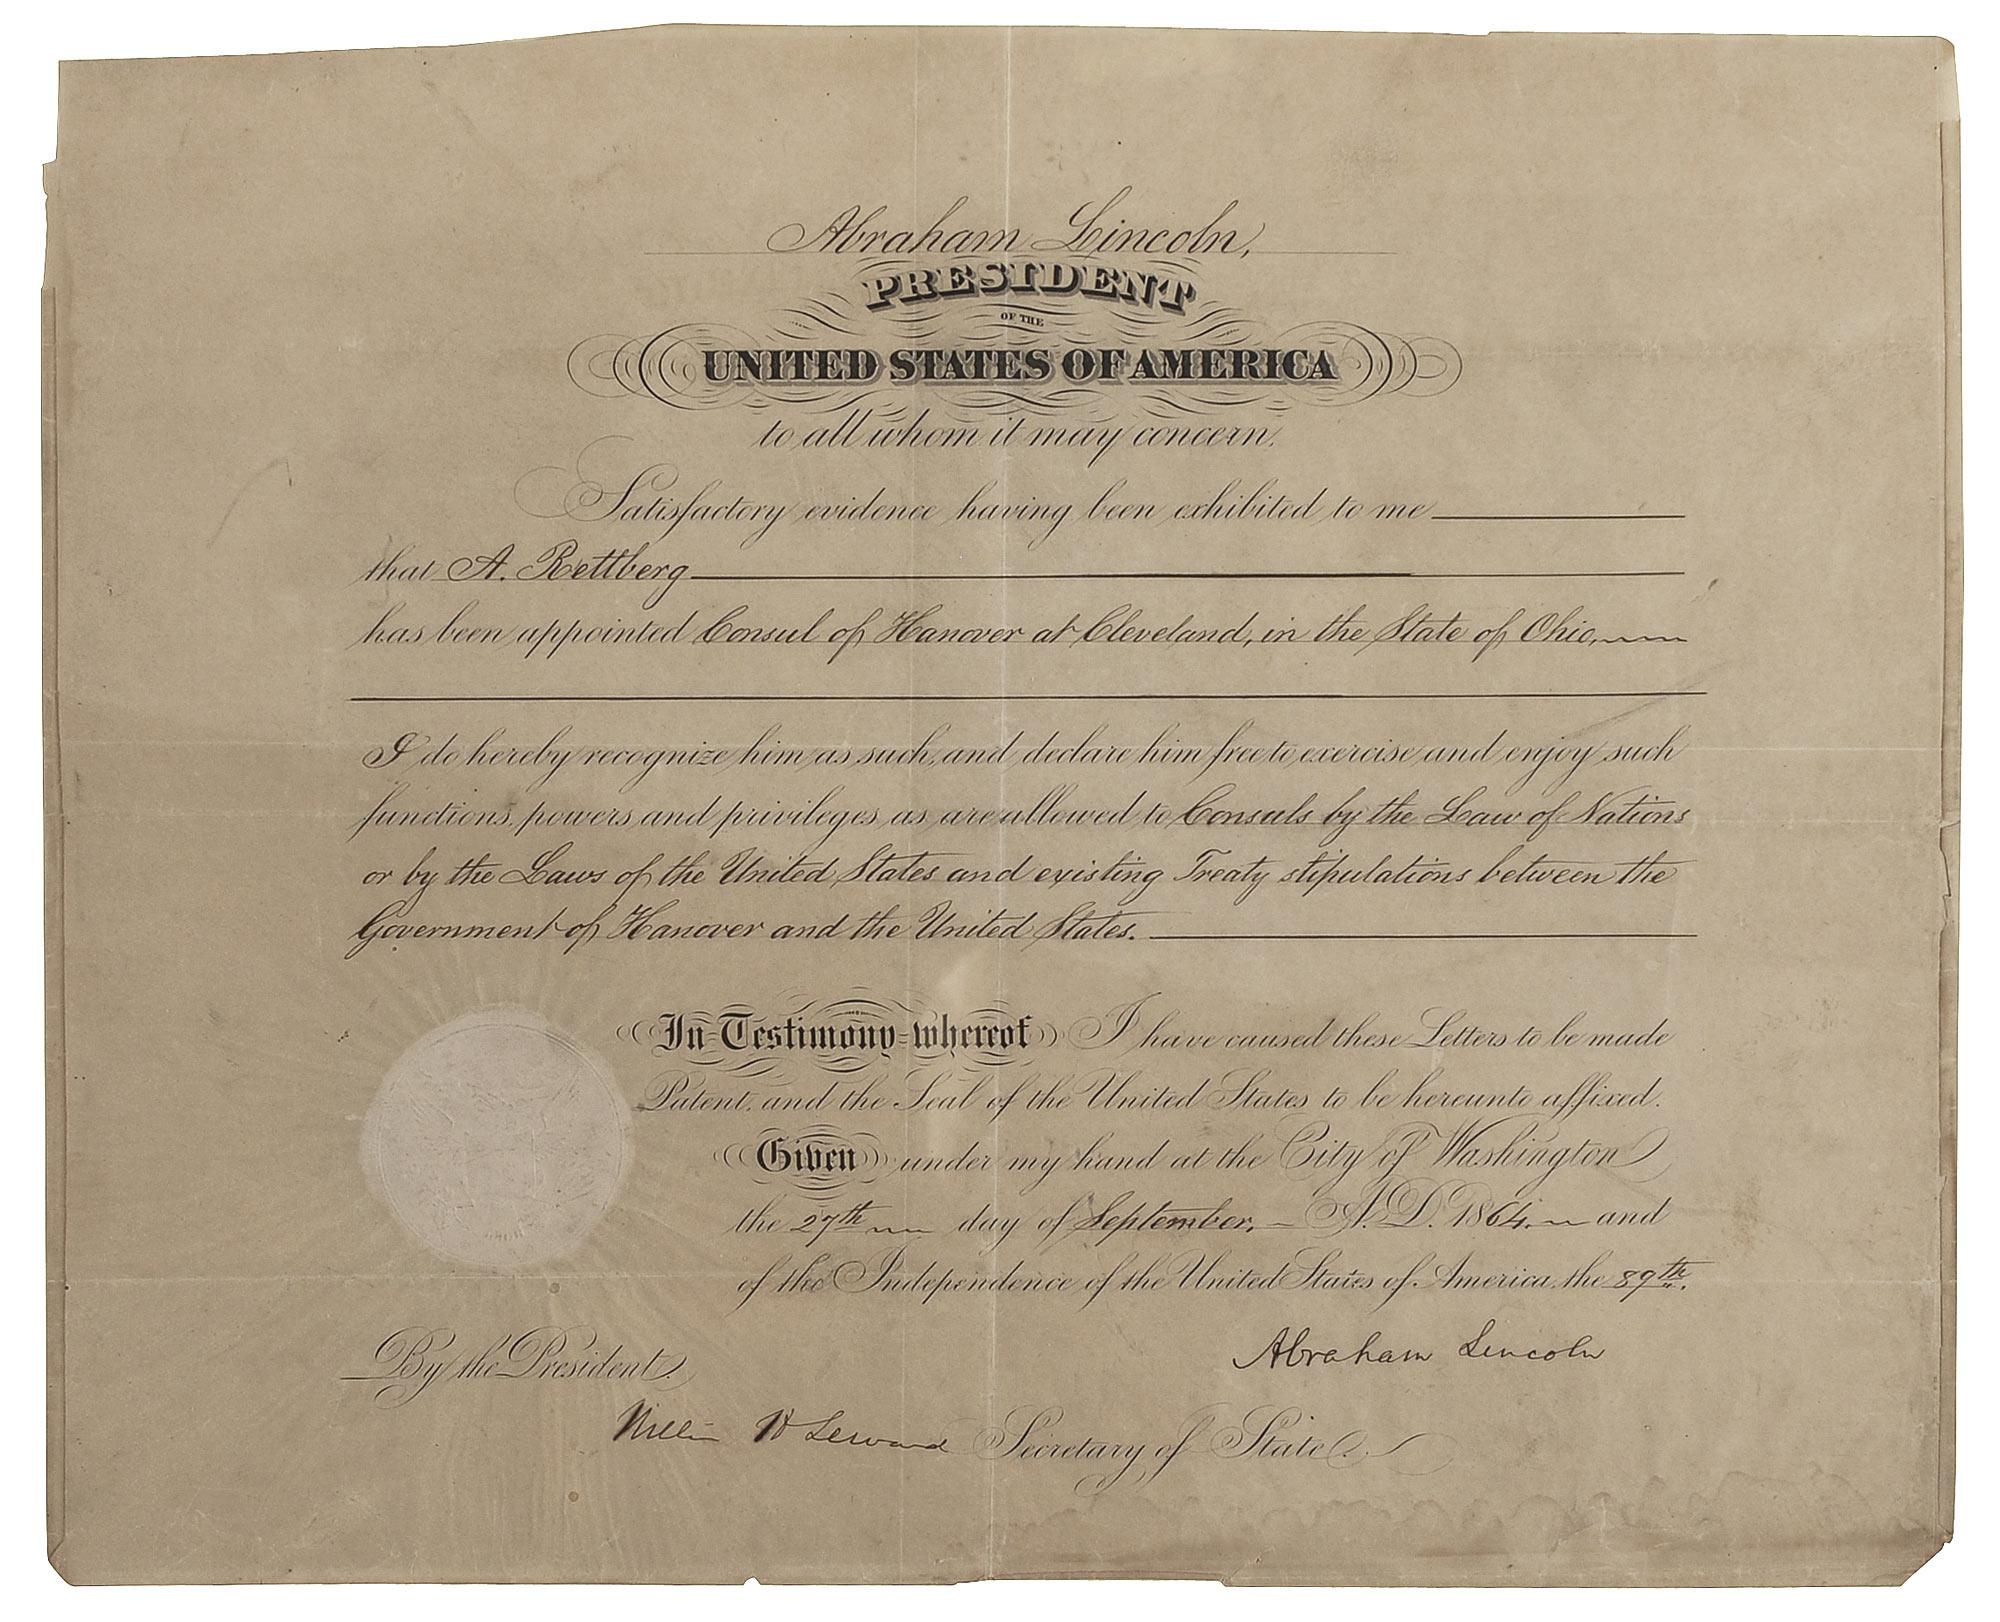 Abraham Lincoln,
PRESIDENT
OF THE
UNITED STATES OF AMERICA
to all whom it may concern.
Satisfactory evidence having been exhibited to me
that A. Rettberg
has been appointed Consul of Hanover at Cleveland, in the State of Ohio,
I do hereby recognize him as such, and declare him free to exercise and enjoy such
functions, powers and privileges as are allowed to Consuls by the Law of Nations
or by the Laws of the United States and existing Treaty stipulations between the
Government of Hanover and the United States.
In Testimony whereof I have caused these Letters to be made
Patent, and the Seal of the United States to be hereunto affixed.
Given under my hand at the City of Washington
the 27th day of September, A.D. 1864, and
of the Independence of the United States of America, the 89th.
By the President
Abraham Lincoln
William H Seward Secretary of State.